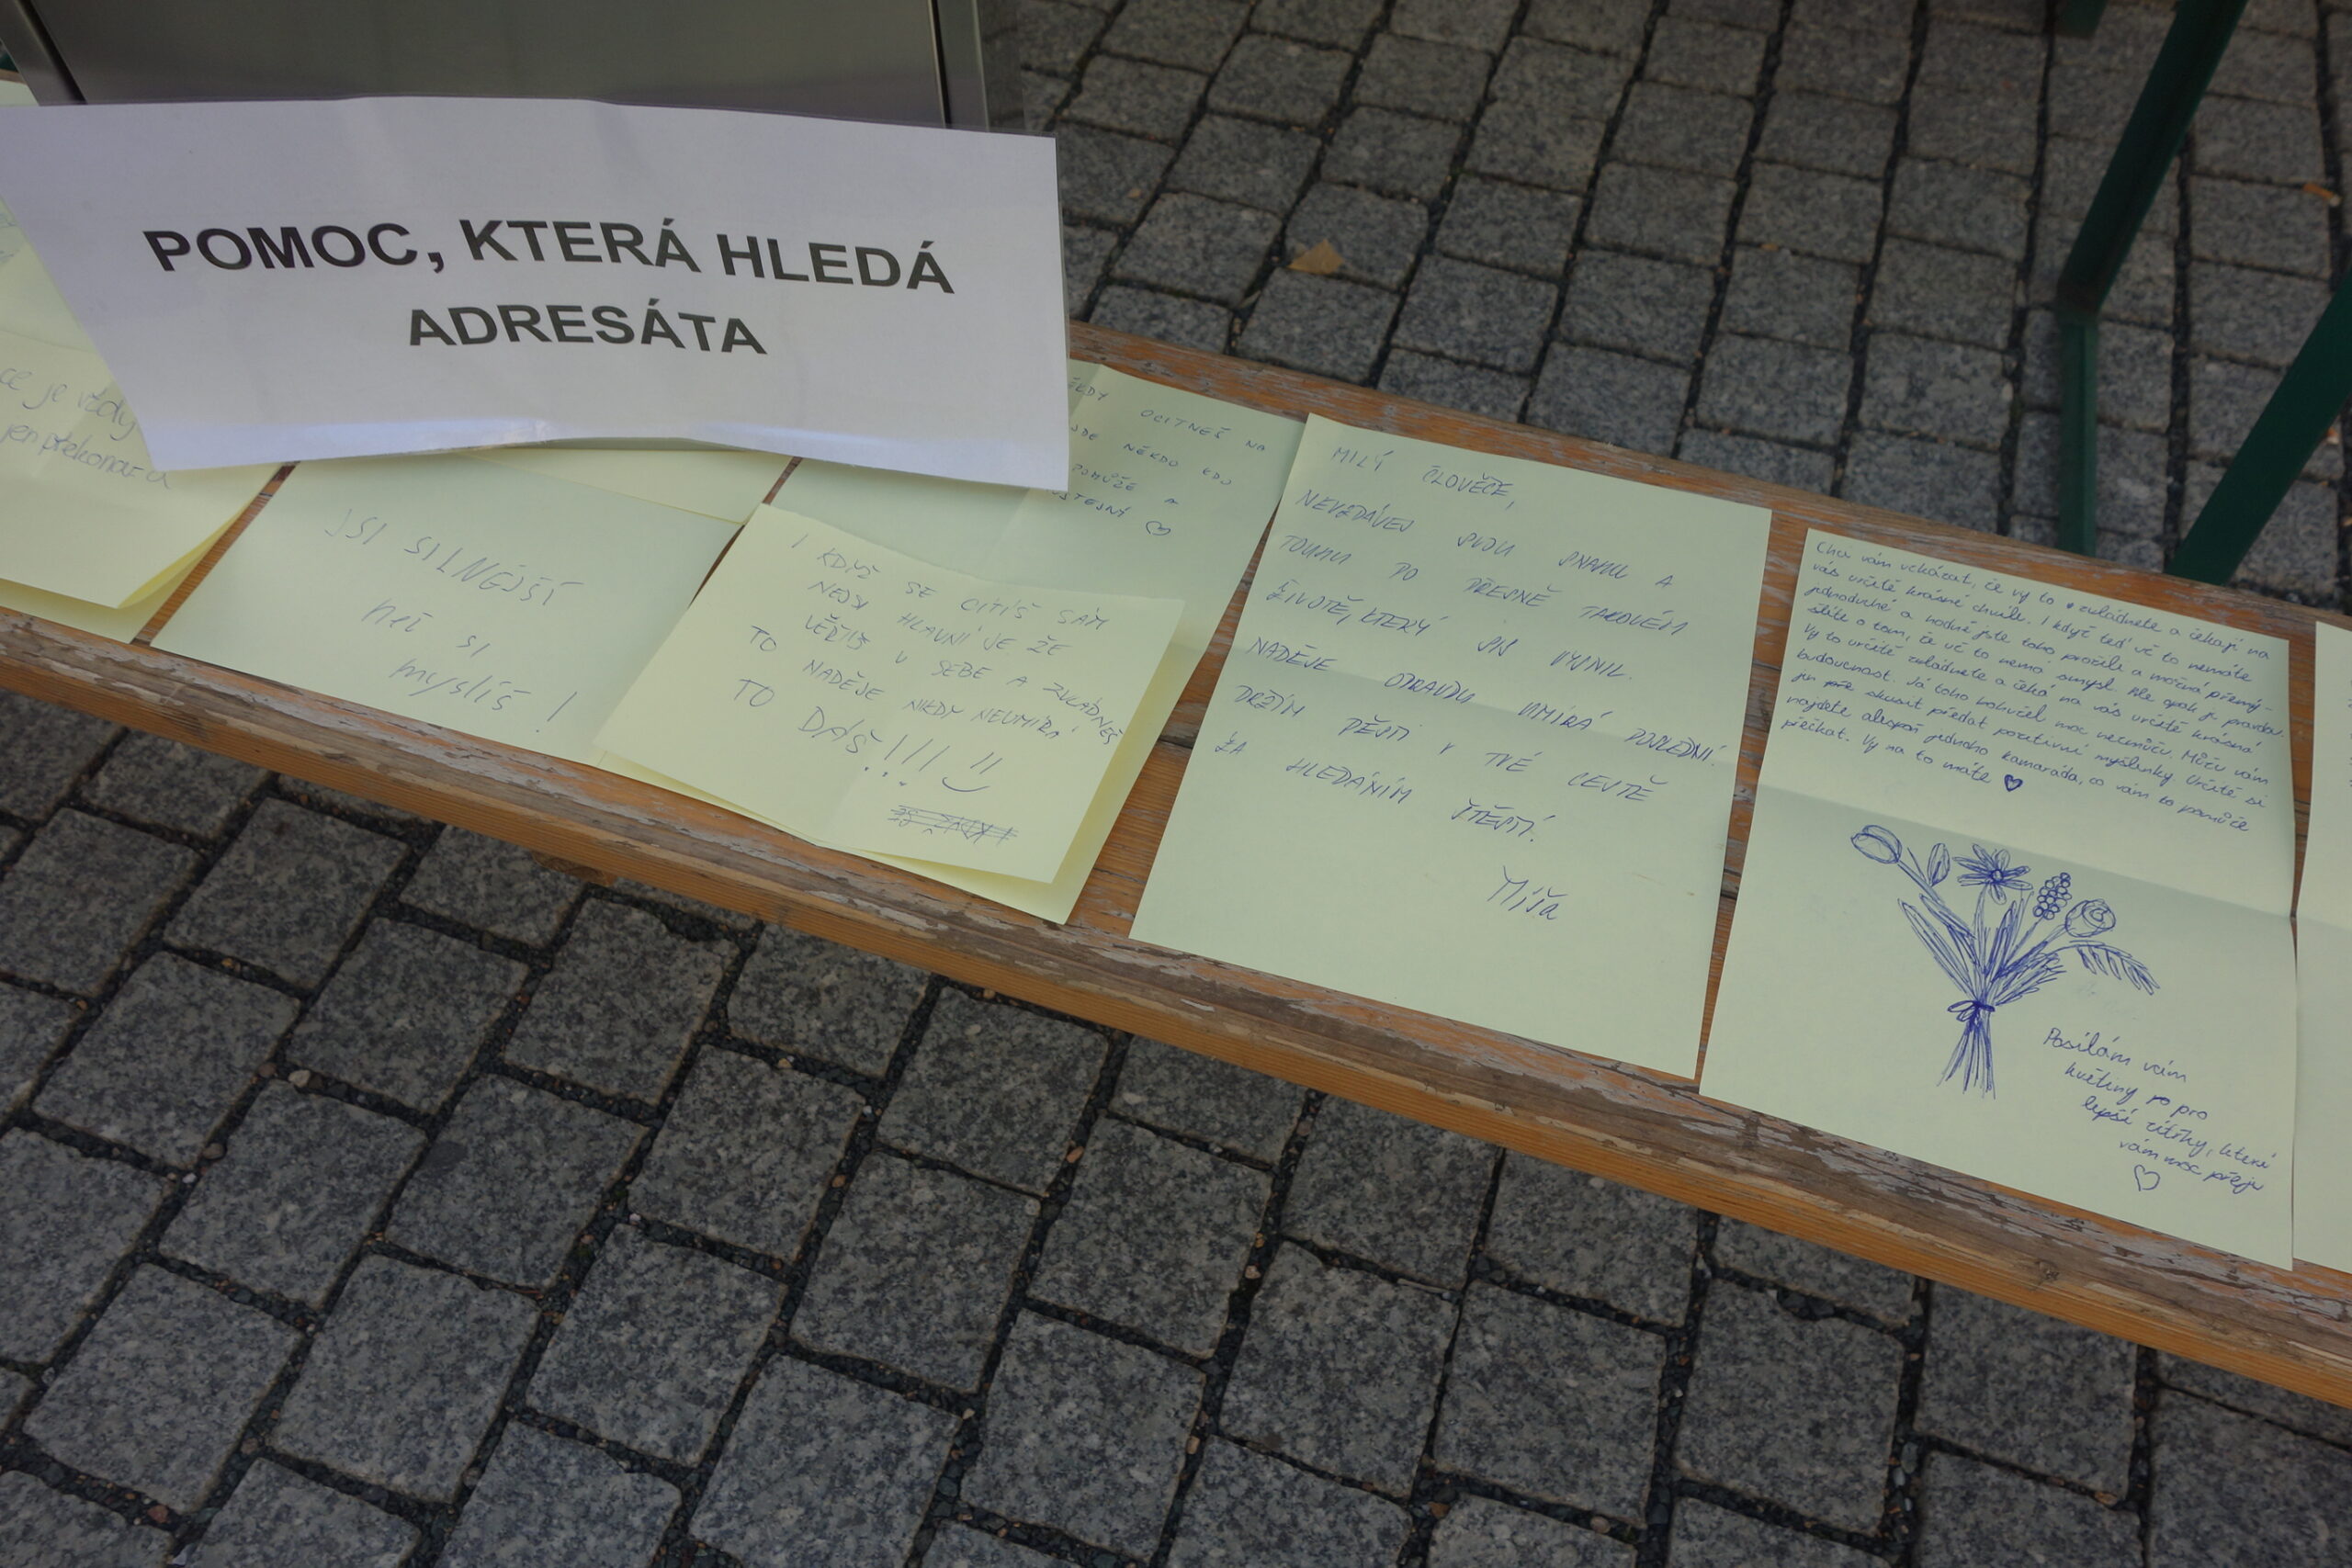 POMOC, KTERÁ HLEDÁ
ADRESÁTA
ce je vždy
jen překonat a
JSI SILNĚJŠÍ
než si
myslíš !
OCITNEŠ NA
NĚKDO KDO
POMŮŽE A
♡
I KDYŽ SE CÍTÍŠ SÁM
NEJSI HLAVNÍ JE ŽE
VĚŘÍŠ V SEBE A ZVLÁDNEŠ
TO NADĚJE NIKDY NEUMÍRÁ
TO DÁŠ!!!
MILÝ ČLOVĚČE,
NEVZDÁVEJ SVOU SNAHU A
TOUHU PO PŘESNĚ TAKOVÉM
ŽIVOTĚ, KTERÝ SIS VYSNIL.
NADĚJE OPRAVDU UMÍRÁ POSLEDNÍ.
DRŽÍM PĚSTI V TVÉ CESTĚ
ZA HLEDÁNÍM ŠTĚSTÍ.
Míša
Chci vám vzkázat, že vy to zvládnete a čekají na
vás určitě krásné chvíle. I když teď vč to nemáte
jednoduché a hodně jste toho prožili a možná přemý-
šlíte o tom, že vč to nemá smysl. Ale opak je pravda.
Vy to určitě zvládnete a čeká na vás určitě krásná
budoucnost. Já toho bohužel moc nezmůžu. Můžu vám
jen zkusit předat pozitivní myšlenky. Určitě si
najdete alespoň jednoho kamaráda, co vám to pomůže
přečkat. Vy na to máte ♥
Posílám vám
květiny pro
lepší zítřky, které
vám moc přeju
♡